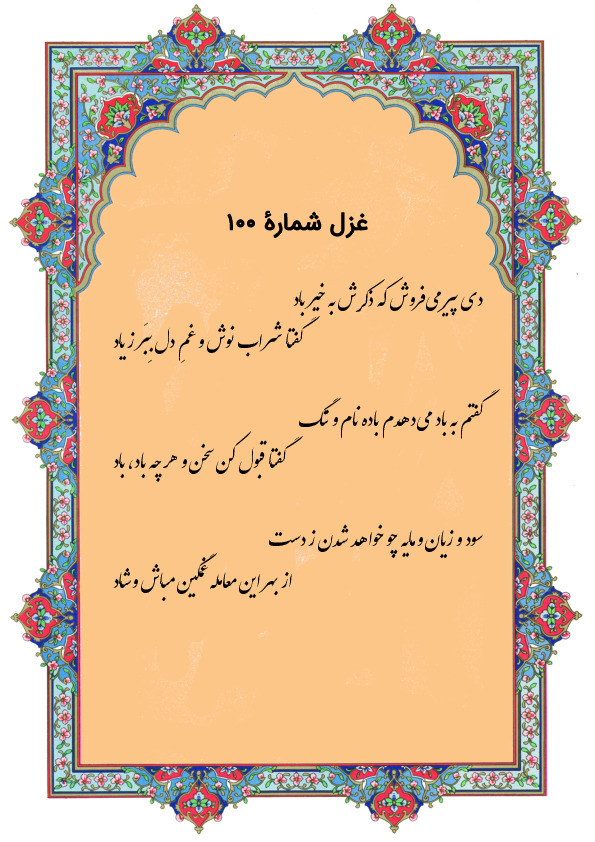 غزل شمارهٔ ۱۰۰
دی پیر می‌فروش که ذکرش به خیر باد
گفتا شراب نوش و غمِ دل بِبَر ز یاد
گفتم به باد می‌دهدم باده نام و ننگ
گفتا قبول کن سخن و هر چه باد، باد
سود و زیان و مایه چو خواهد شدن ز دست
از بهر این معامله غمگین مباش و شاد